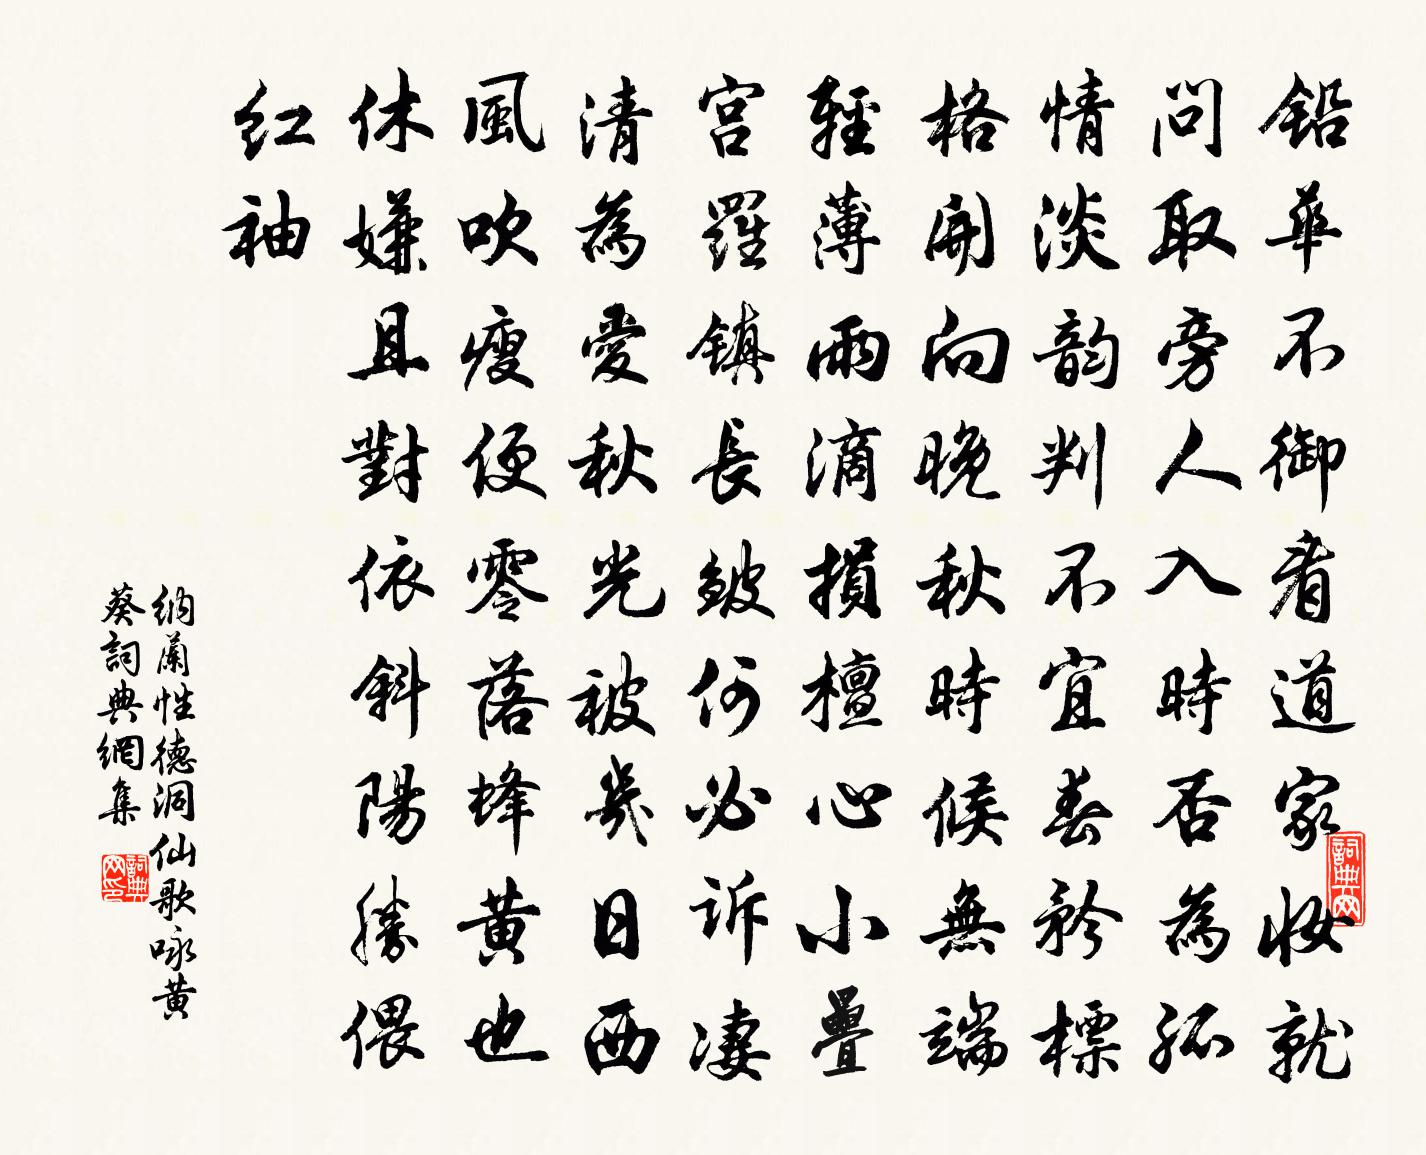 鉛華不御看道家妝就
問取旁人入時否為孤
情淡韵判不宜春矜標
格開向晚秋時候無端
輕薄雨滴損檀心小疊
宮羅鎮長皺何必訴淒
清為愛秋光被幾日西
風吹瘦便零落蜂黃也
休嫌且對依斜陽勝偎
紅袖
納蘭性德洞仙歌咏黃
葵詞典網集
詞典网
詞典网印